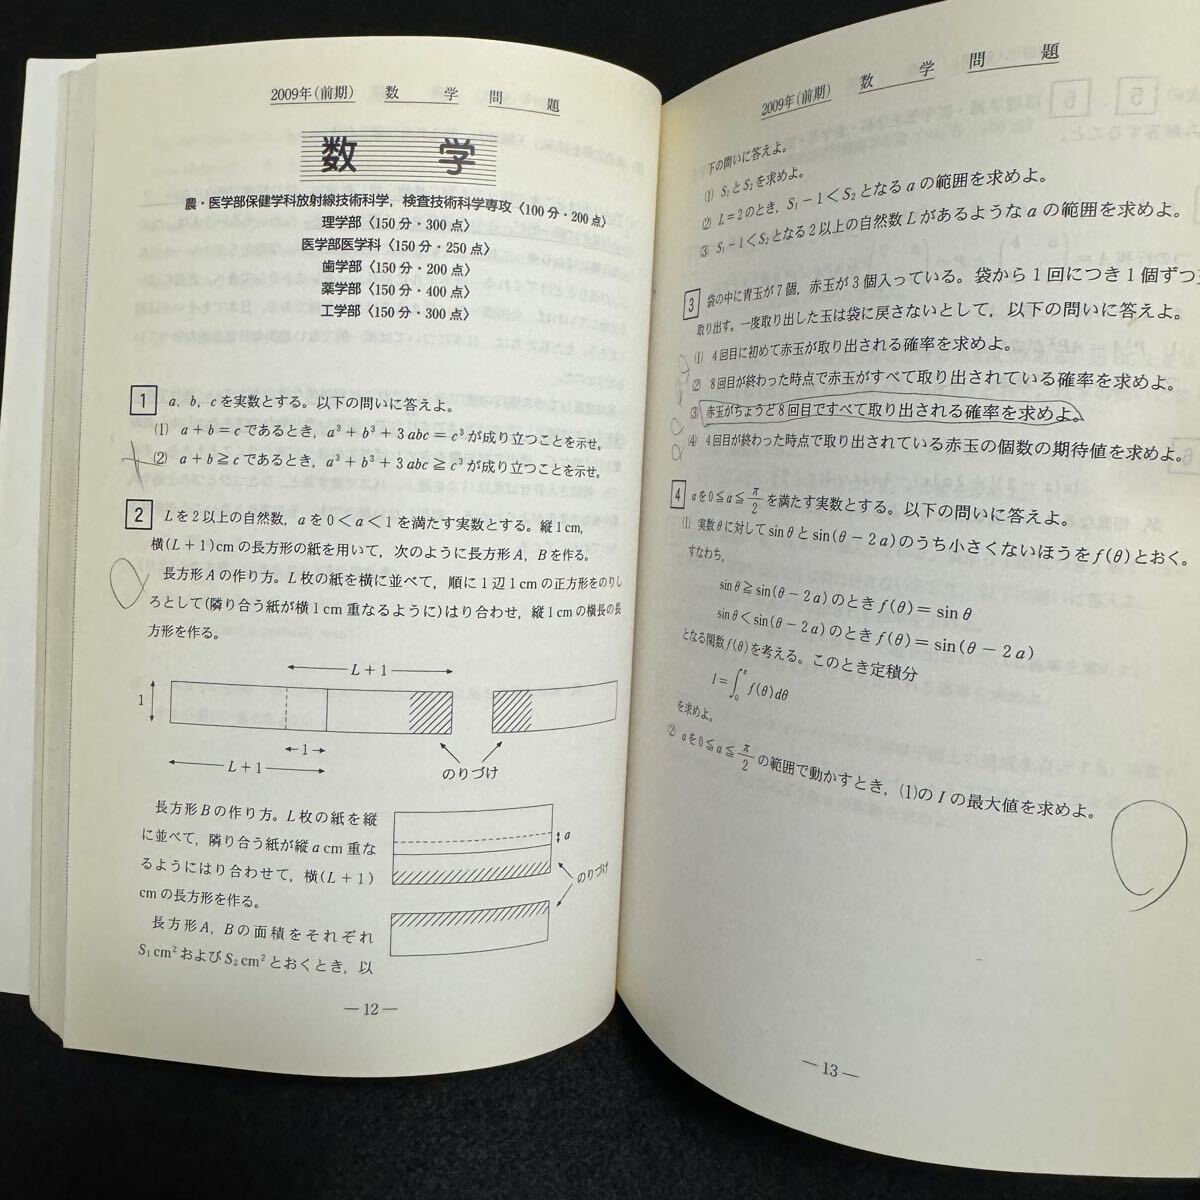 2009年(前期) 数学問題
数学
農・医学部保健学科放射線技術科学，検査技術科学専攻〈100分・200点〉
理学部〈150分・300点〉
医学部医学科〈150分・250点〉
歯学部〈150分・200点〉
薬学部〈150分・400点〉
工学部〈150分・300点〉
1 a, b, c を実数とする。以下の問いに答えよ。
(1) a+b=c であるとき，a³+b³+3abc=c³ が成り立つことを示せ。
(2) a+b≧c であるとき，a³+b³+3abc≧c³ が成り立つことを示せ。
2 Lを2以上の自然数，aを0<a<1を満たす実数とする。縦1cm,
横(L+1)cmの長方形の紙を用いて，次のように長方形A，Bを作る。
長方形Aの作り方。L枚の紙を横に並べて，順に1辺1cmの正方形をのりし
ろとして(隣り合う紙が横1cm重なるように)はり合わせ，縦1cmの横長の長
方形を作る。
L+1
1
1
L+1
のりづけ
長方形Bの作り方。L枚の紙を縦
に並べて，隣り合う紙が縦a cm重な
るようにはり合わせて，横(L+1)
cmの長方形を作る。
長方形A，Bの面積をそれぞれ
S₁cm²およびS₂cm²とおくとき，以
a
のりづけ
—12—
2009年(前期) 数学問題
下の問いに答えよ。
(1) S₁とS₂を求めよ。
(2) L=2のとき，S₁−1<S₂となるaの範囲を求めよ。
(3) S₁−1<S₂となる2以上の自然数Lがあるようなaの範囲を求めよ。
3 袋の中に青玉が7個，赤玉が3個入っている。袋から1回につき1個ずつ玉
取り出す。一度取り出した玉は袋に戻さないとして，以下の問いに答えよ。
(1) 4回目に初めて赤玉が取り出される確率を求めよ。
(2) 8回目が終わった時点で赤玉がすべて取り出されている確率を求めよ。
(3) 赤玉がちょうど8回目ですべて取り出される確率を求めよ。
(4) 4回目が終わった時点で取り出されている赤玉の個数の期待値を求めよ。
4 aを0≦a≦π/2を満たす実数とする。以下の問いに答えよ。
(1) 実数θに対してsinθとsin(θ−2a)のうち小さくないほうをf(θ)とおく。
すなわち，
sinθ≧sin(θ−2a)のときf(θ)=sinθ
sinθ<sin(θ−2a)のときf(θ)=sin(θ−2a)
となる関数f(θ)を考える。このとき定積分
I=∫₀^π f(θ)dθ
を求めよ。
(2) aを0≦a≦π/2の範囲で動かすとき，(1)のIの最大値を求めよ。
—13—